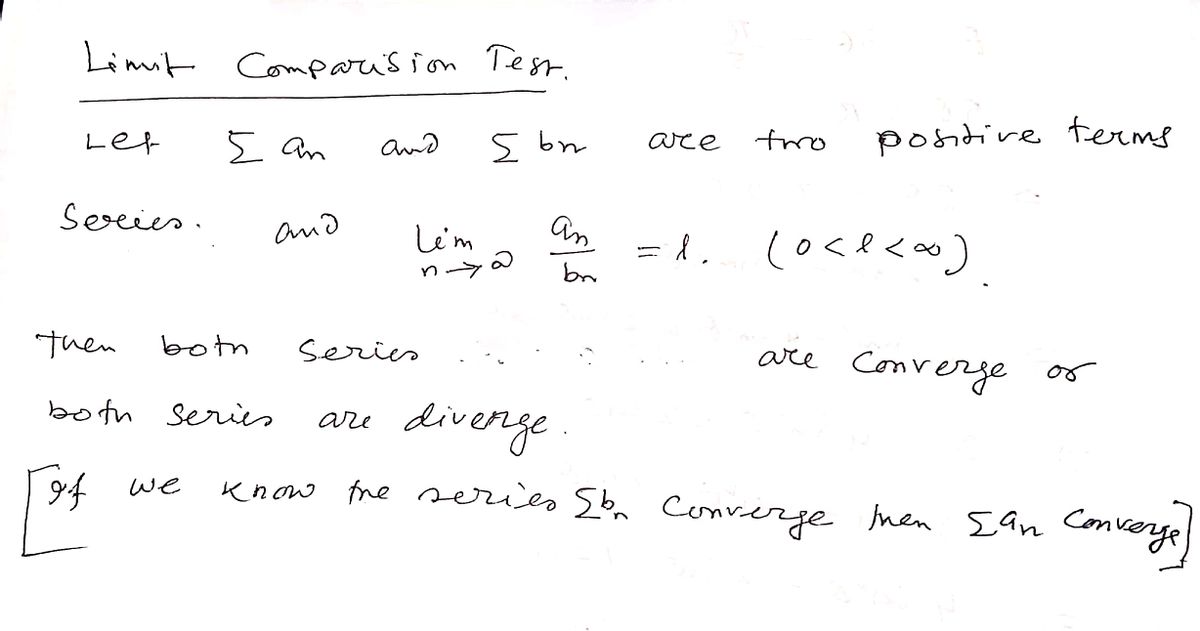 Limit Comparision Test.
Let Σ an and Σ bn are two positive terms
Series. and lim n→∞ an/bn = l. (0<l<∞).
then both series ........ are converge or
both series are diverge.
[If we know the series Σbn Converge then Σan Converge]